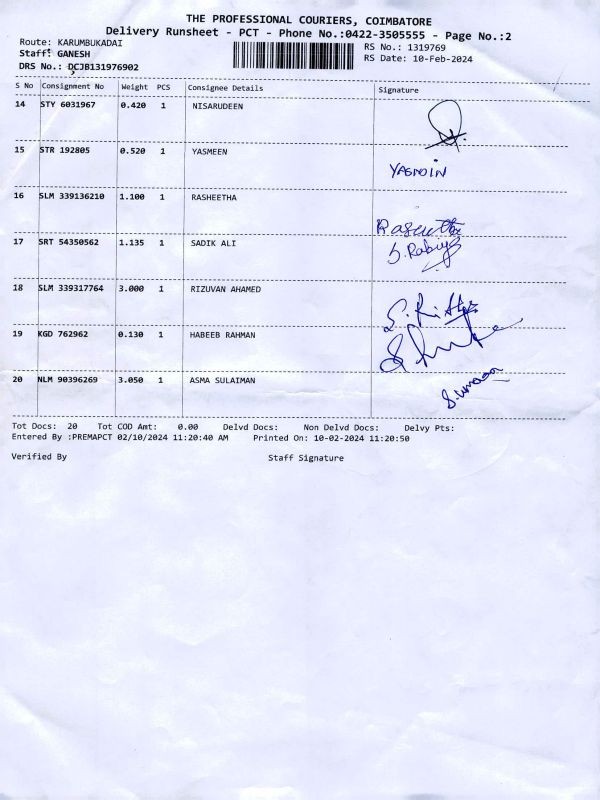 THE PROFESSIONAL COURIERS, COIMBATORE
Delivery Runsheet - PCT - Phone No.:0422-3505555 - Page No.:2
Route: KARUMBUKADAI
Staff: GANESH
DRS No.: DCJB131976902
RS No.: 1319769
RS Date: 10-Feb-2024
S No Consignment No Weight PCS Consignee Details Signature
14 STY 6031967 0.420 1 NISARUDEEN
15 STR 192805 0.520 1 YASMEEN
YASMIN
16 SLM 339136210 1.100 1 RASHEETHA
17 SRT 54350562 1.135 1 SADIK ALI
S.Rabiya
18 SLM 339317764 3.000 1 RIZUVAN AHAMED
19 KGD 762962 0.130 1 HABEEB RAHMAN
20 NLM 90396269 3.050 1 ASMA SULAIMAN
Tot Docs: 20 Tot COD Amt: 0.00 Delvd Docs: Non Delvd Docs: Delvy Pts:
Entered By :PREMAPCT 02/10/2024 11:20:40 AM Printed On: 10-02-2024 11:20:50
Verified By Staff Signature